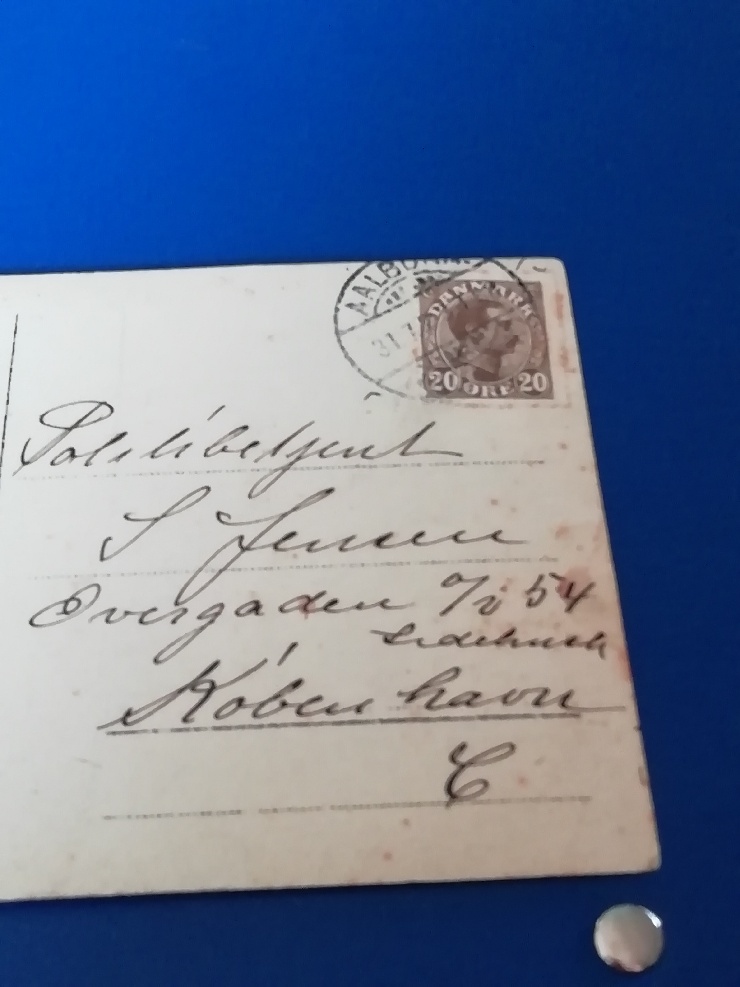 AALBORG
31.7
DANMARK
20 ØRE 20
Politibetjent
S Jensen
Overgaden o/v 54
Sidehuset
København
C